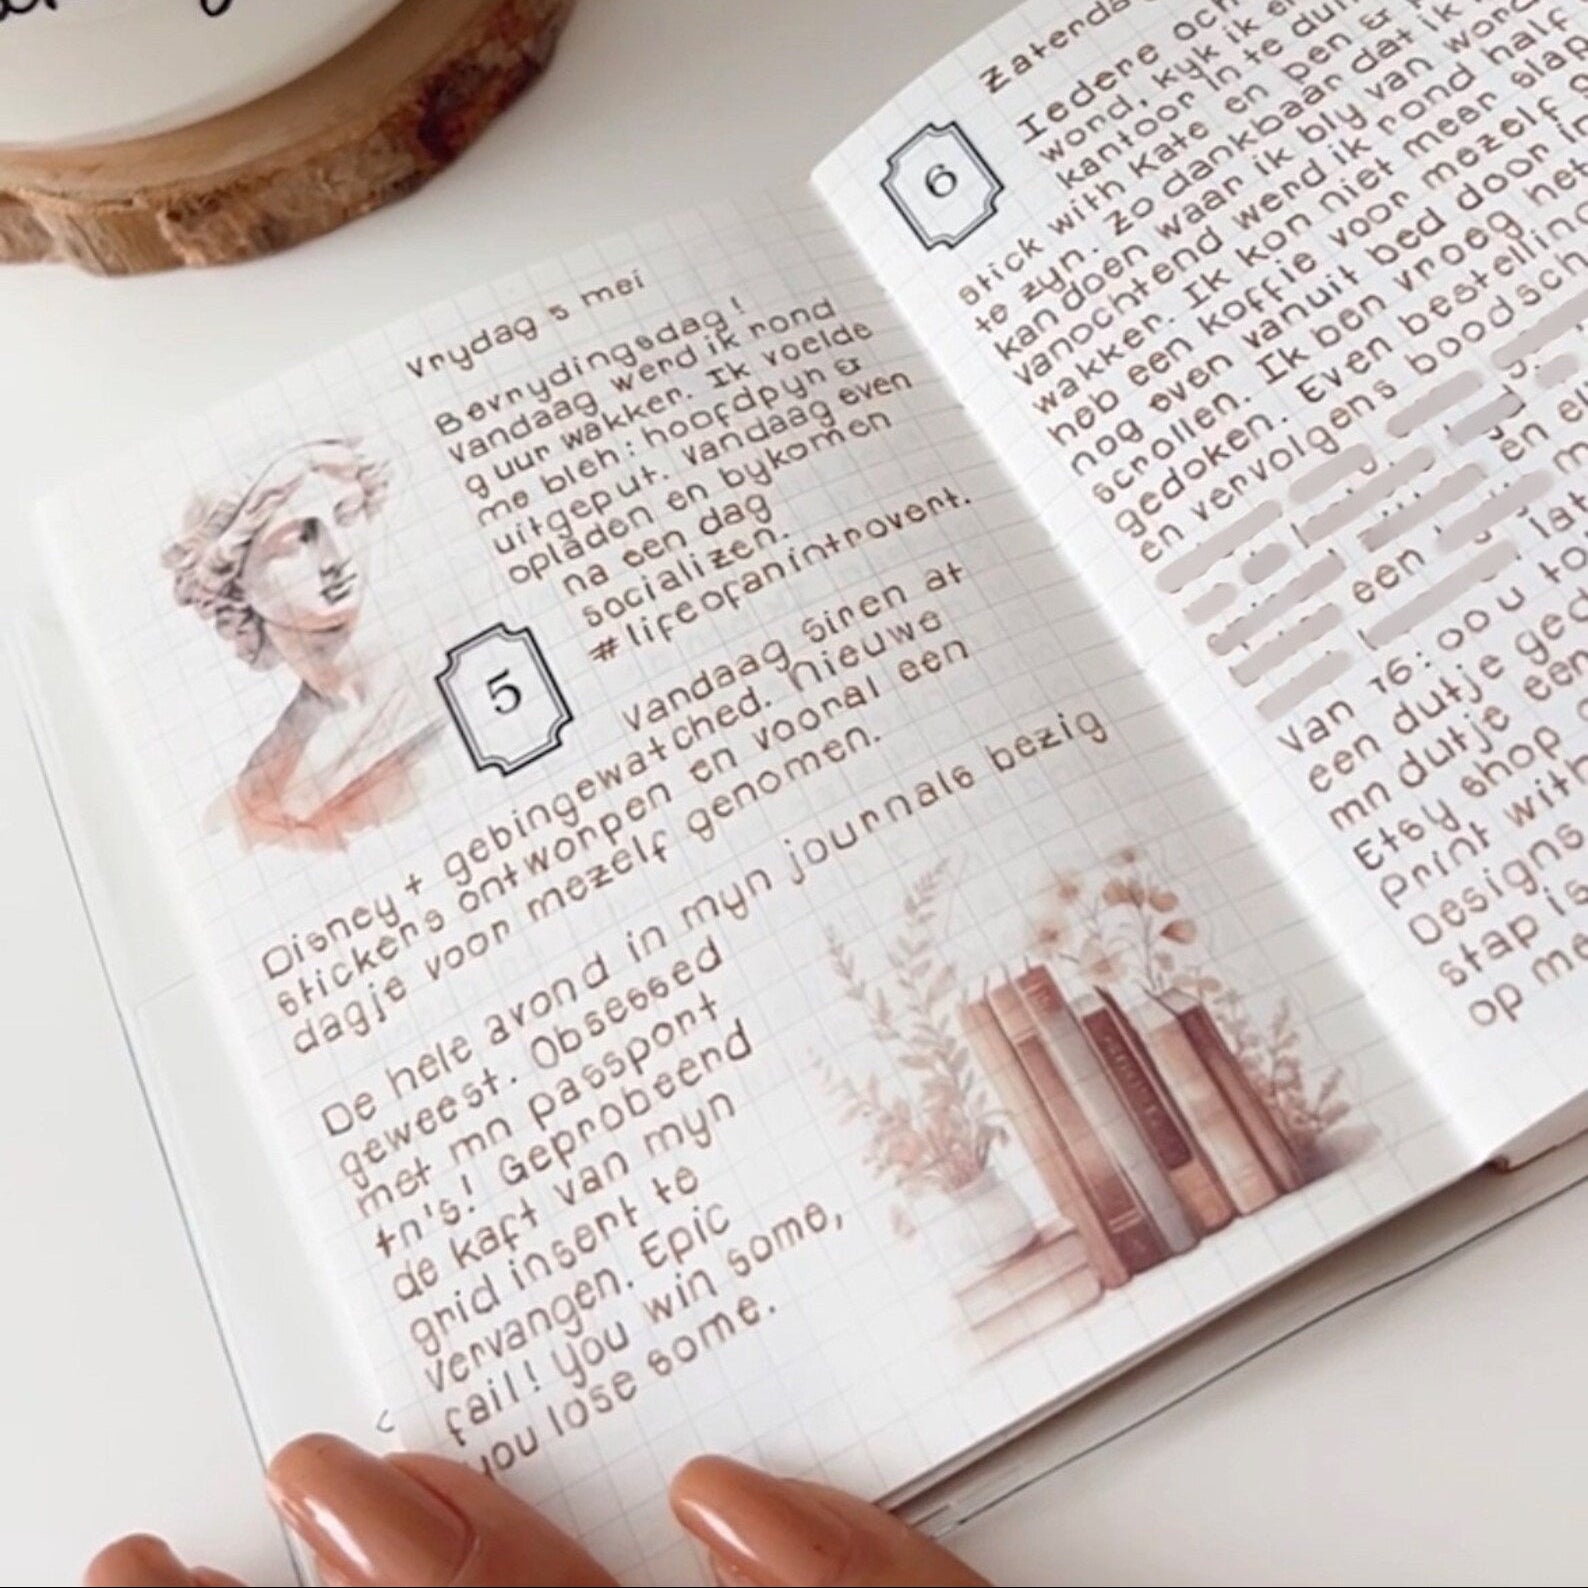 vrydag 5 mei
Bevrydingsdag!
vandaag werd ik rond
9 uur wakker. Ik voelde
me bleh: hoofdpyn &
uitgeput. vandaag even
opladen en bykomen
na een dag
socializen.
#lifeofanintrovert.
5
vandaag Siren at
Disney+ gebingewatched. nieuwe
stickers ontworpen en vooral een
dagje voor mezelf genomen.
De hele avond in myn journals bezig
geweest. Obsessed
met mn passport
tn's! Geprobeerd
de kaft van myn
grid insert te
vervangen. Epic
fail! you win some,
you lose some.
6
Iedere
word, kyk ik
kantoor in te
stick with Kate en pen &
te zyn. Zo dankbaar dat ik
kan doen waar ik bly van word
vanochtend werd ik rond half
wakker. Ik kon niet meer
heb een koffie voor mezelf
nog even vanuit bed door
scrollen. Ik ben vroeg het
gedoken. Even
en vervolgens
en
een
van 16:00u
een dutje
mn dutje een
Etsy shop
print with
Designs
stap is
op